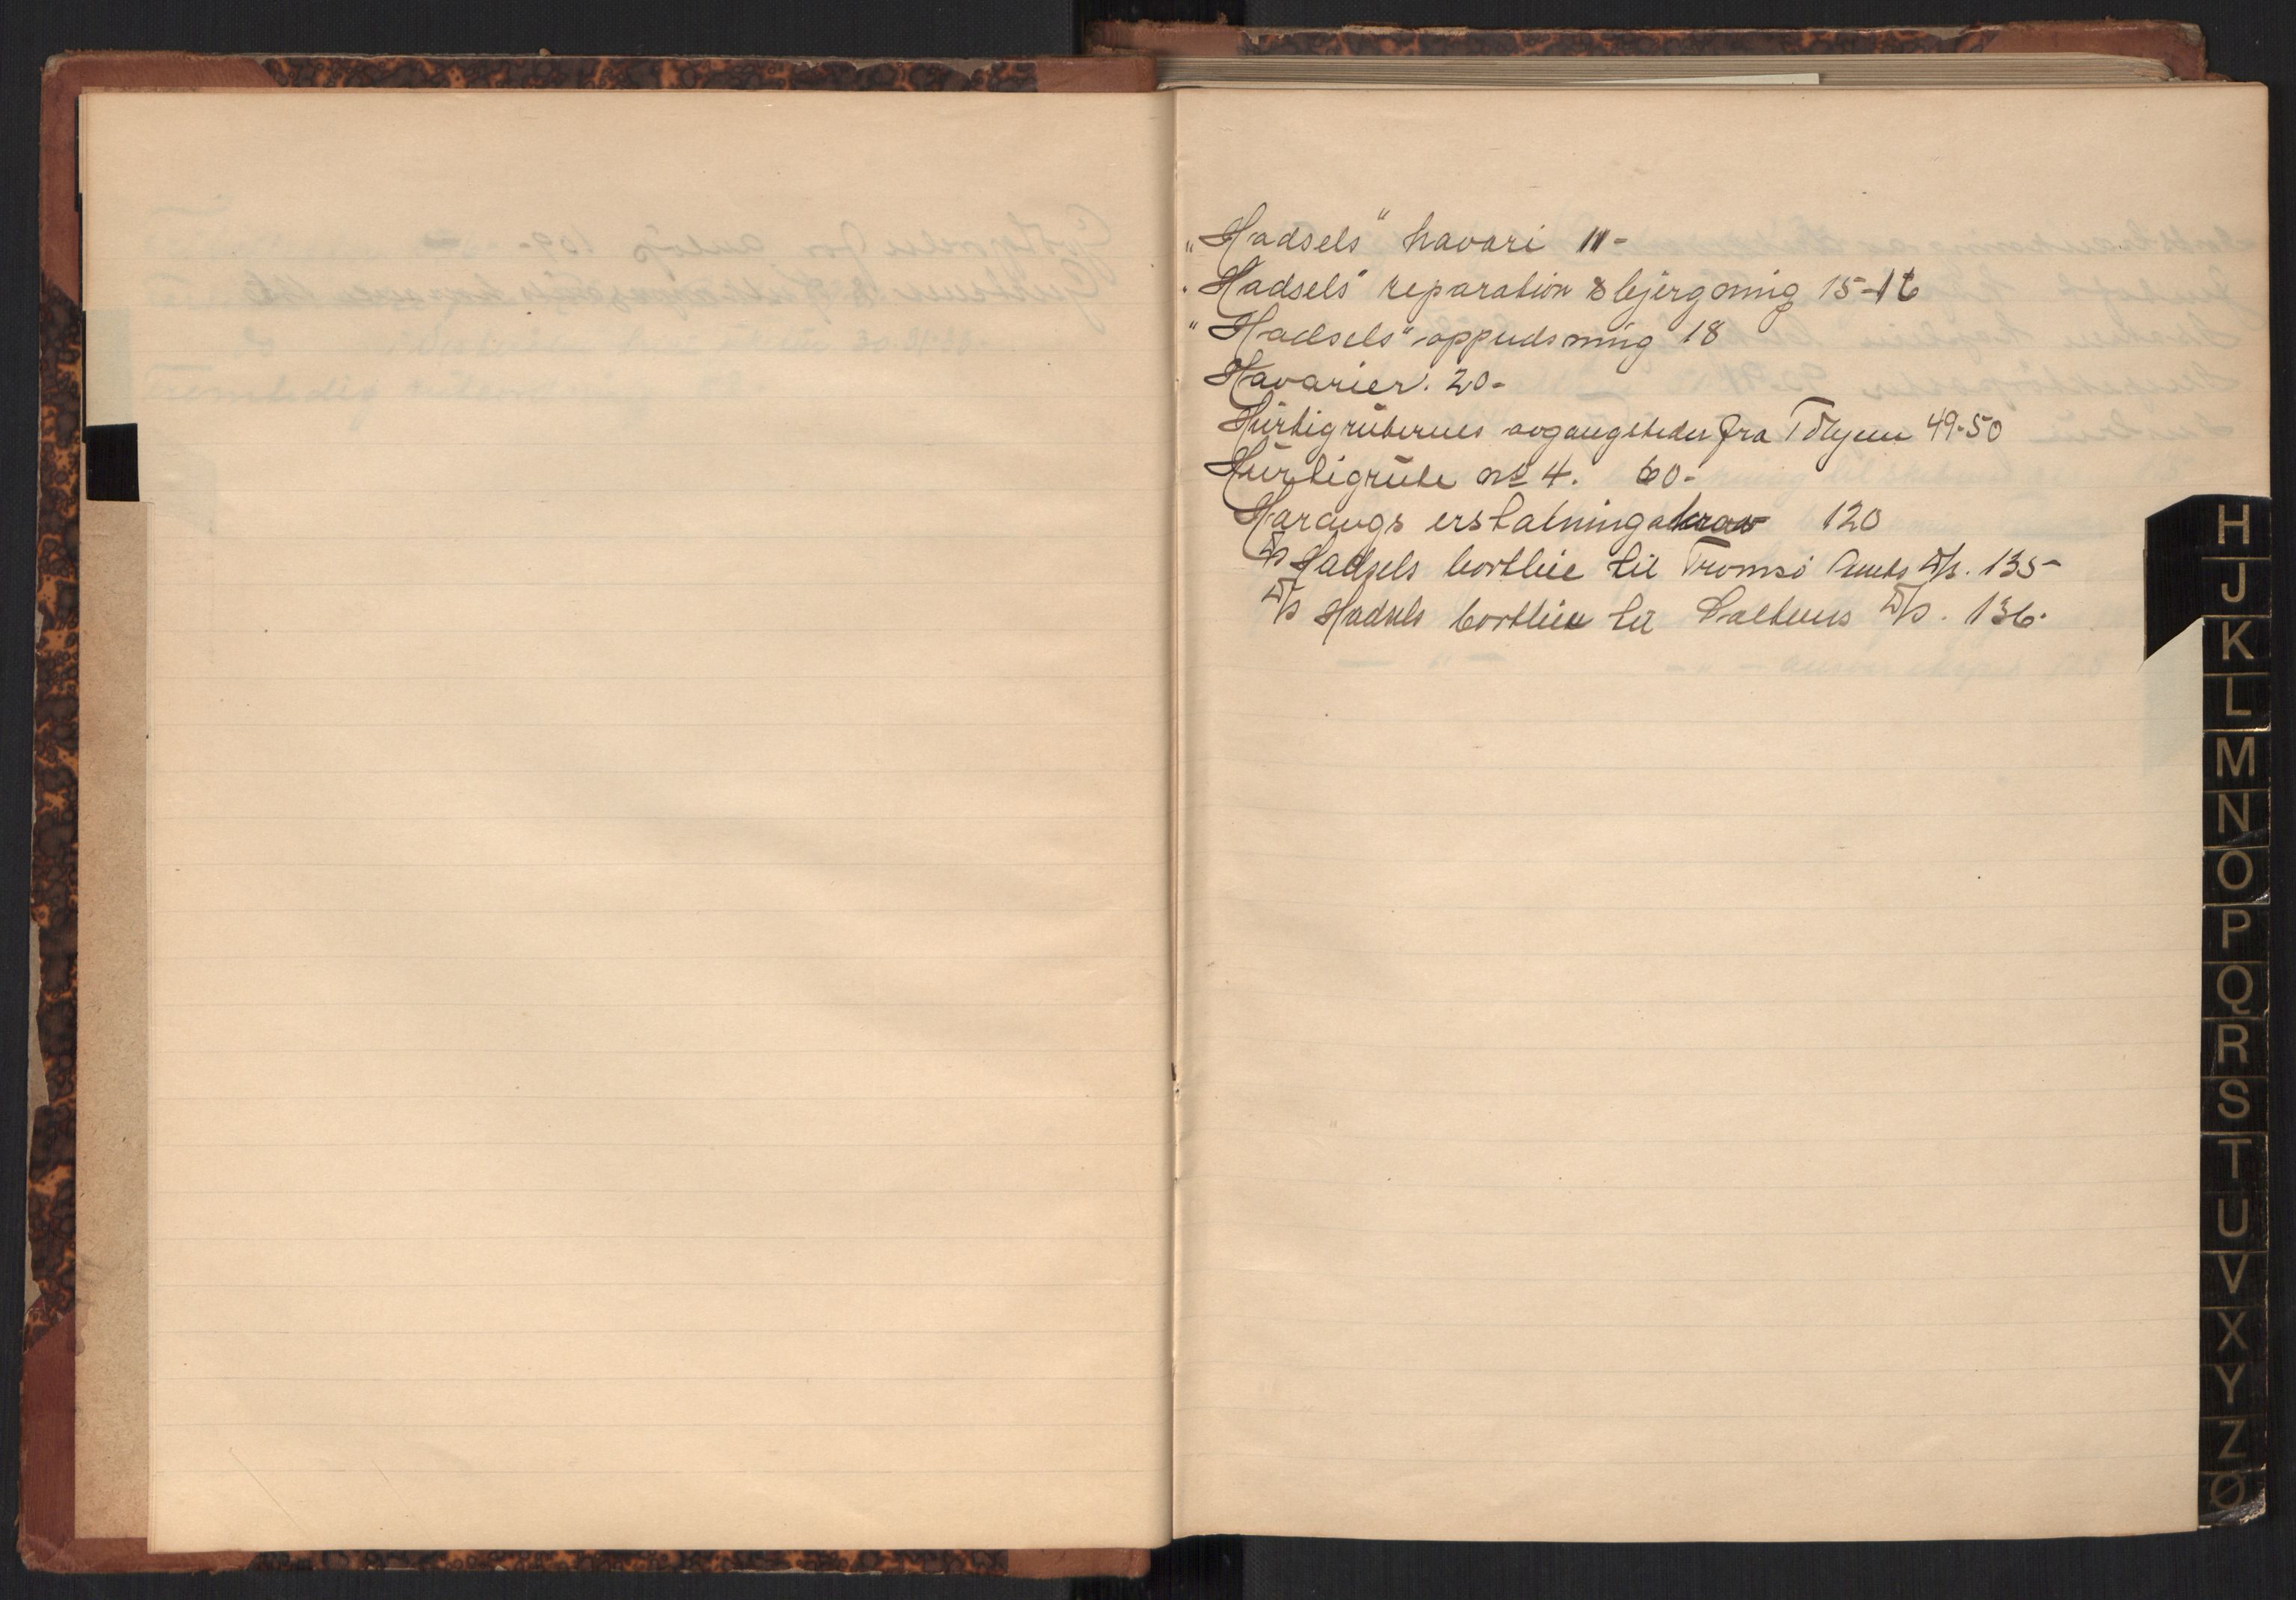 „Hadsels" havari 11-
„Hadsels" reparation & bjergning 15-16
"Hadsels" oppudsning 18
Havarier. 20-
Hurtigruternes avgangstider fra Tdhjem 49-50
Hurtigrute no 4. 60-
Haraugs erstatningskrav 120
D/S Hadsels bortleie til Tromsö Amts D/s. 135-
D/S Hadsels bortleie til Saltens D/S. 136.
H
J
K
L
M
N
O
P
Q
R
S
T
U
V
X
Y
Z
Ø